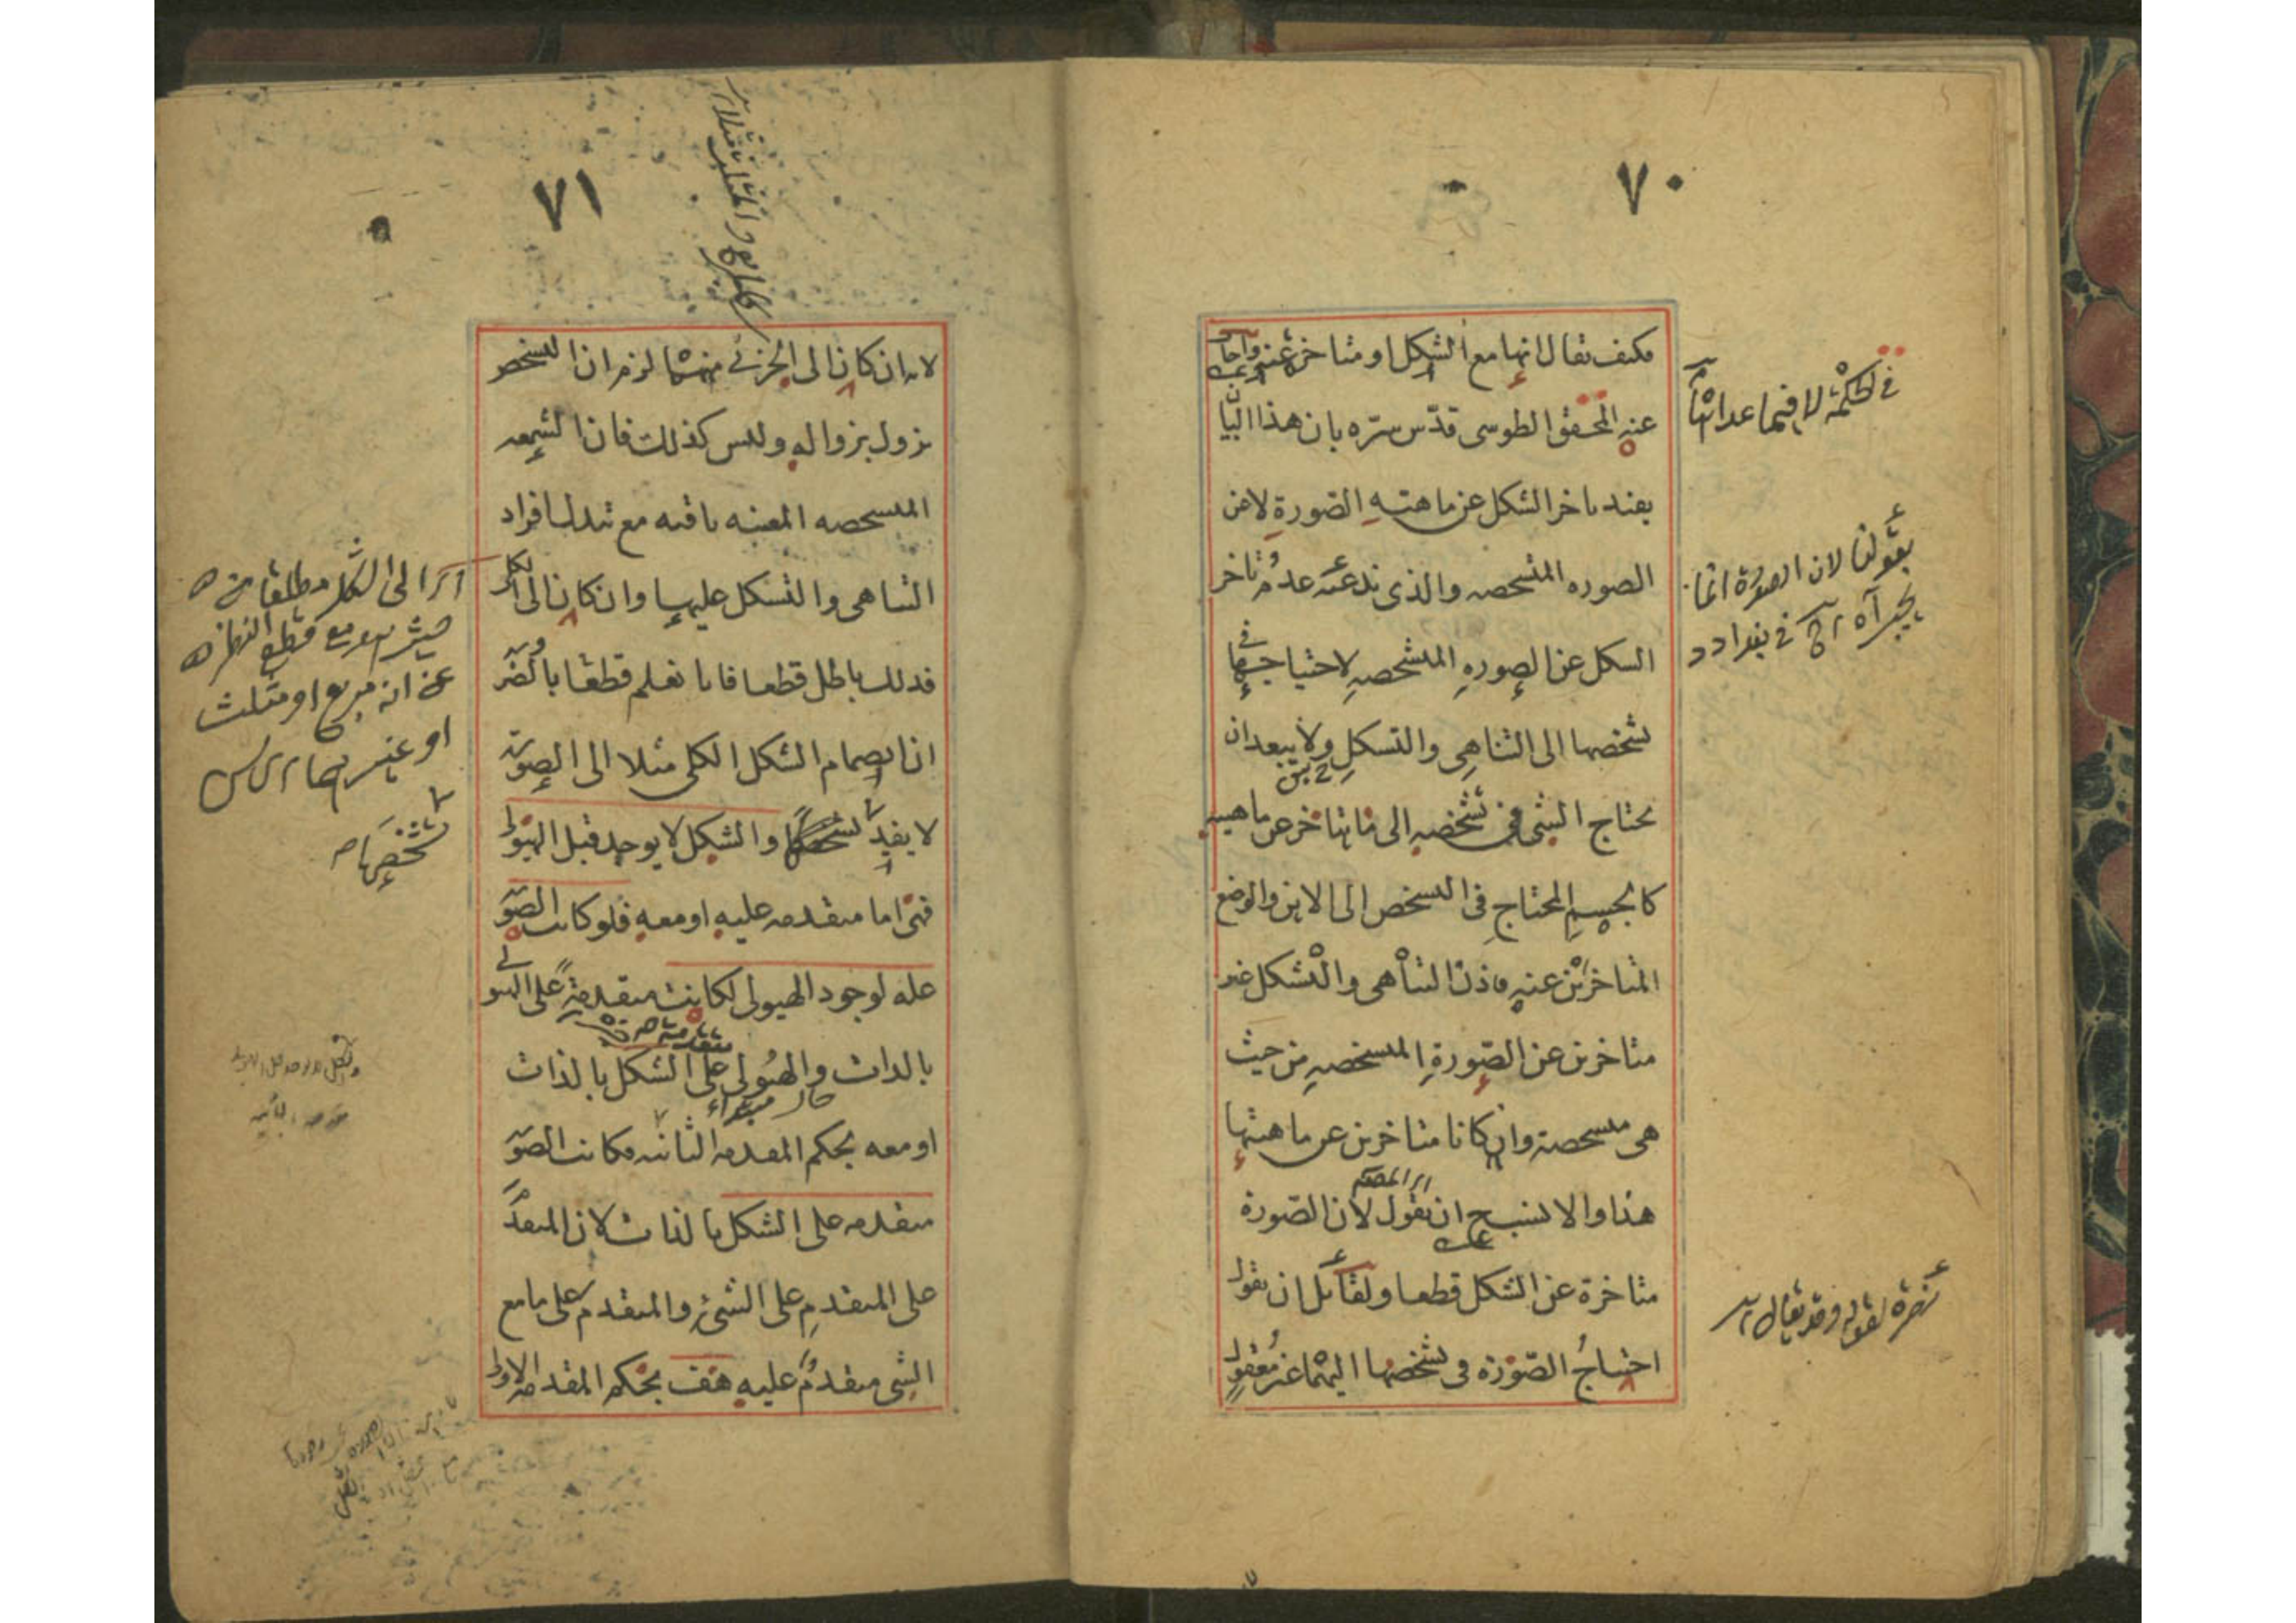 ٧٠
فكيف يقال انها مع الشكل او متاخرة عنه واجاب
عنه المحقق الطوسى قدّس سرّه بان هذا البيان
يفيد تاخر الشكل عن ماهية الصّورة لا عن
الصورة المتشخصه والذى ندعيه عدم تاخر
الشكل عن الصورة المتشخصة لاحتياجها فى
تشخصها الى التناهى والتشكل ولا يبعد ان
يحتاج الشى فى تشخصه الى ما يتاخر عن ماهيته
كالجسم المحتاج فى التشخص الى الاين والوضع
المتاخرين عنه فاذن التناهى والتشكل غير
متاخرين عن الصّورة المتشخصة من حيث
هى متشخصة وان كانا متاخرين عن ماهيتها
هذا والا نسب ان يقول لان الصّورة
متاخرة عن الشكل قطعا ولقائل ان يقول
احتياجُ الصّورة فى تشخصها اليهما غير معقول
فى الحكمة لا فيما عداها
بقولنا لان الصورة انما
نصرة لقوله وقد يقال
٧١
لانه ان كان الى الجزئى منهما لزم ان التشخص
يزول بزواله وليس كذلك فان الشمعه
المتشخصه المعينه باقيه مع تبدل افراد
التناهى والتشكل عليها وان كان الى الكلى
فذلك باطل قطعا فانا نعلم قطعا بالضّرورة
ان انضمام الشكل الكلى مثلا الى الصورة
لا يفيد تشخصها والشكل لا يوجد قبل الهيولى
فهى اما متقدمه عليه او معه فلو كانت الصّورة
علة لوجود الهيولى لكانت متقدمة على الهيولى
بالذات والهيولى متقدمة على الشكل بالذات
او معه بحكم المقدمة الثانيه فكانت الصّورة
متقدمه على الشكل بالذات لان المتقدم
على المتقدم على الشىء والمتقدم على ما مع
الشى متقدمُ عليه هف بحكم المقدمة الاولى
الى الشكل مطلقا من
حيث هو مع قطع النظر
عن انه مربع او مثلث
او غيرهما
تشخصها